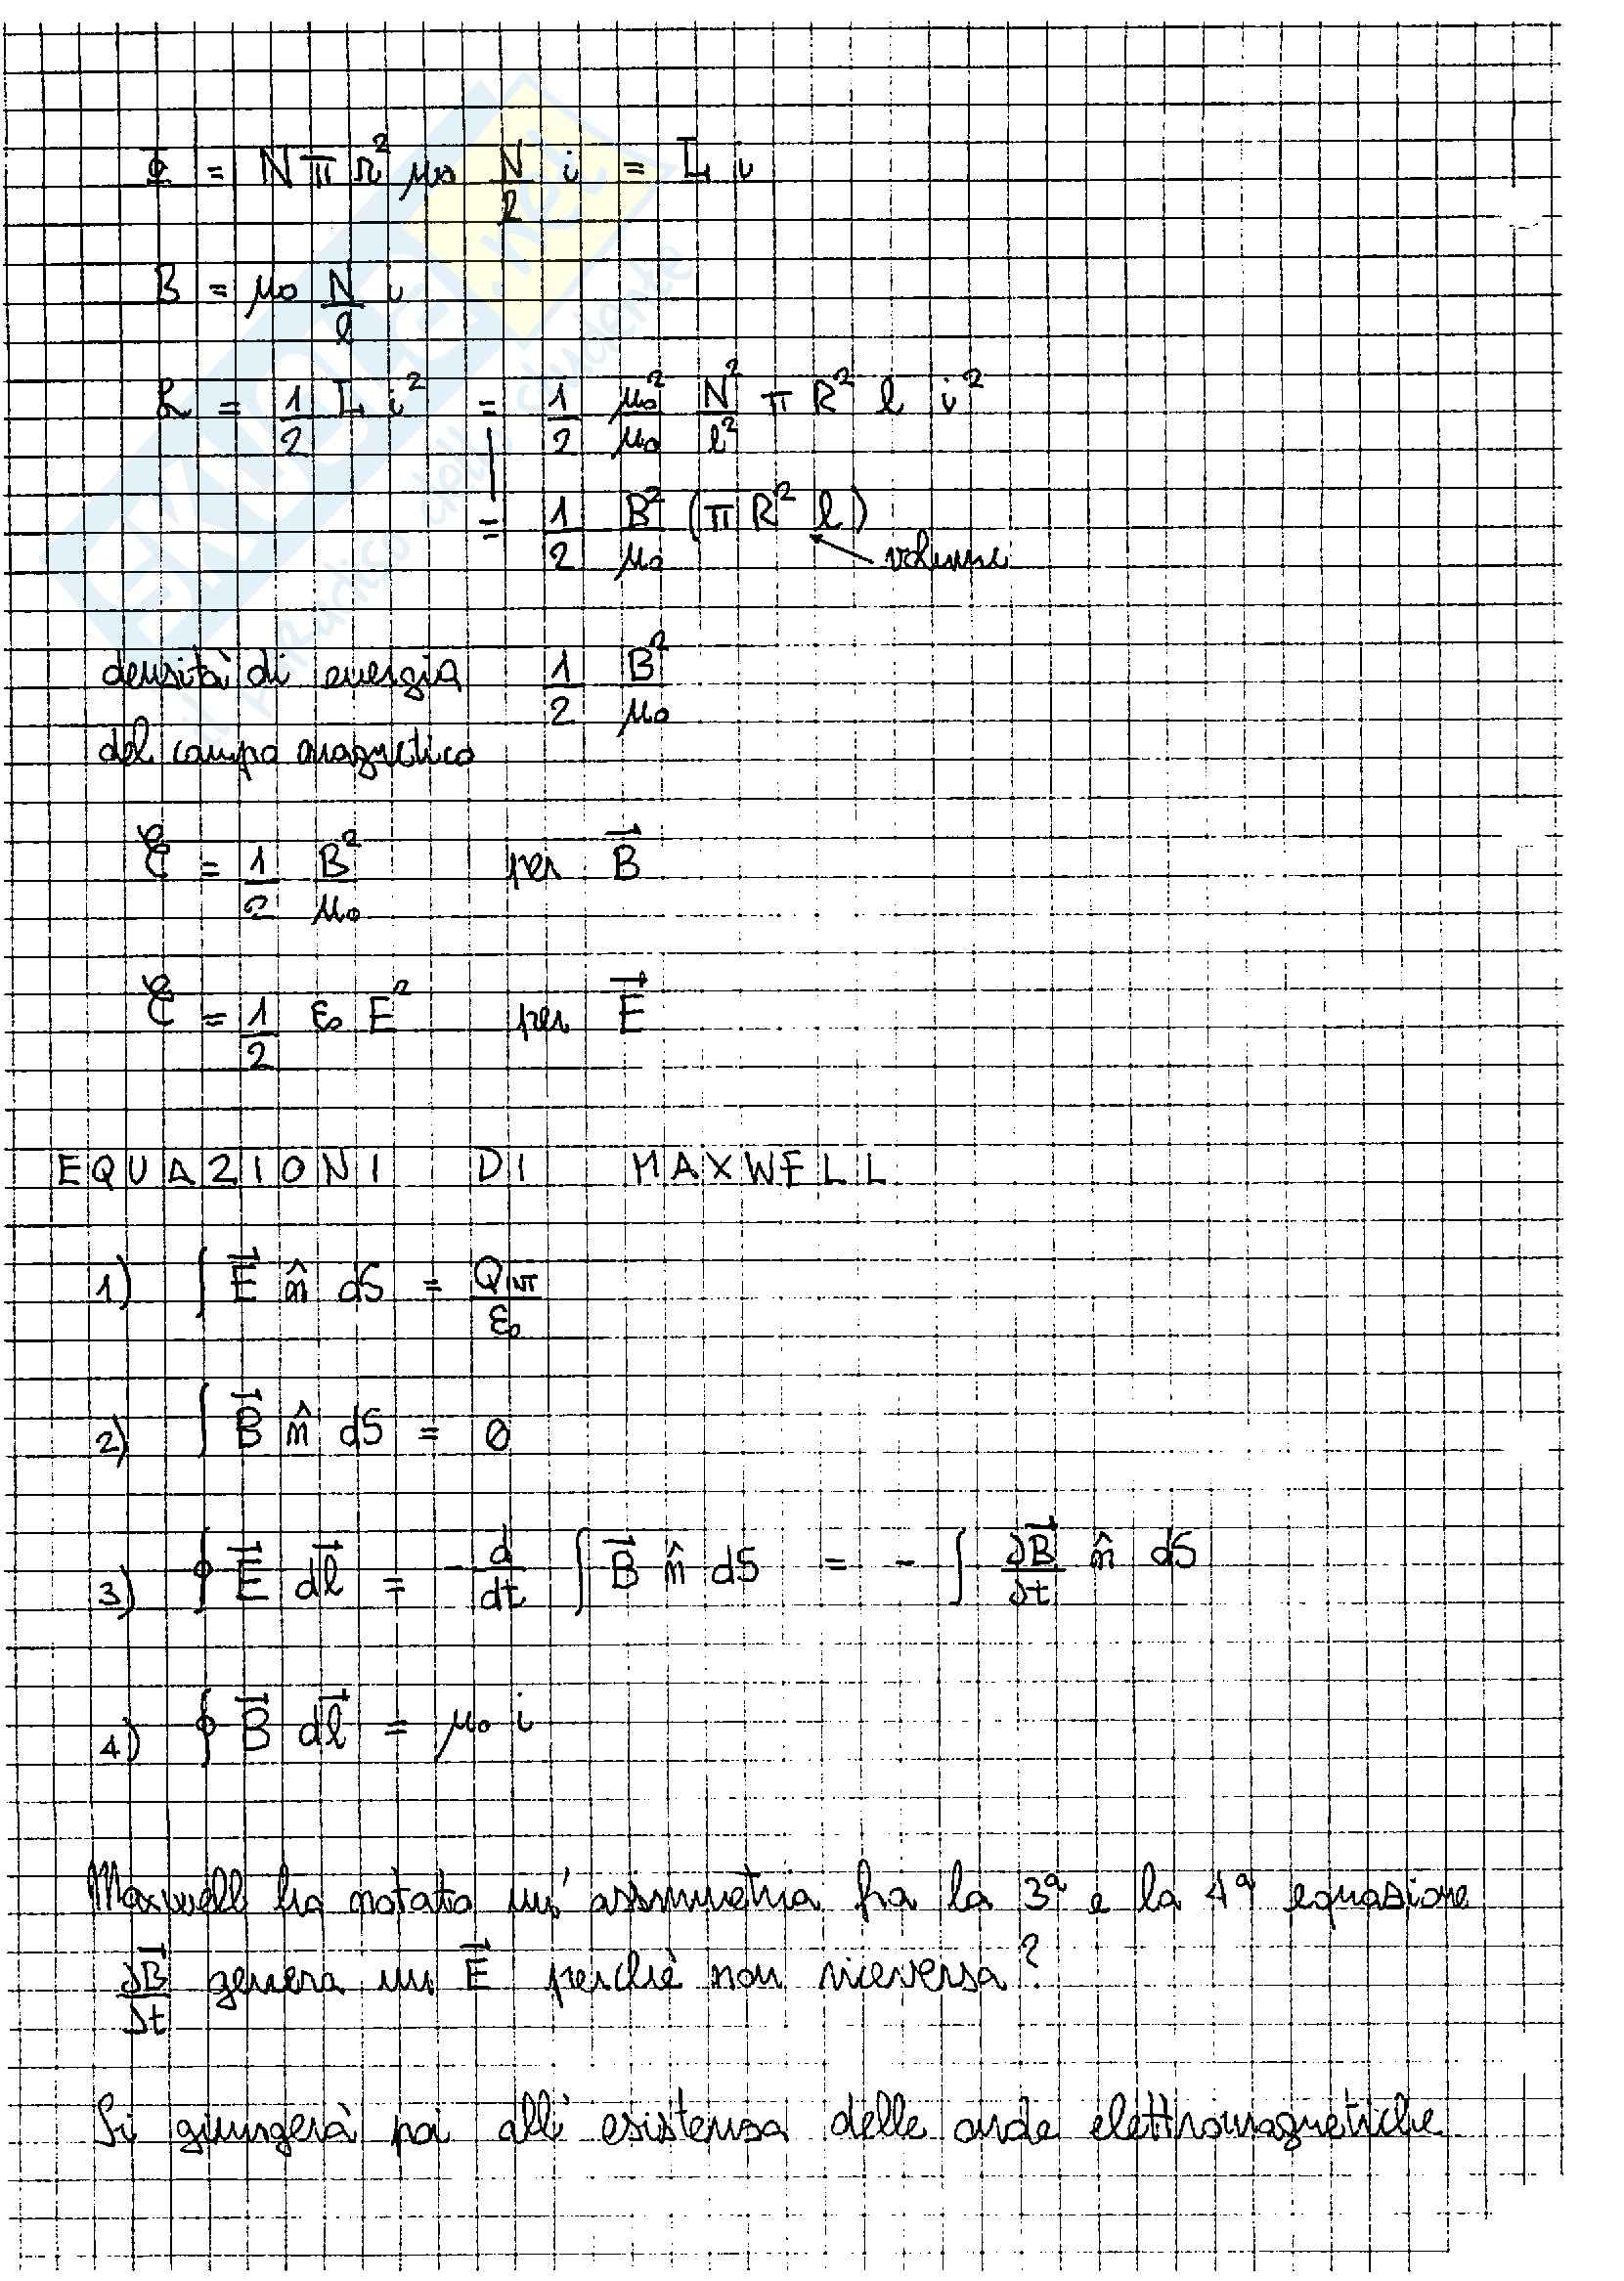 Φ = N π R² μ₀ N/l i = L i
B = μ₀ N/l i
L = 1/2 L i² = 1/2 μ₀²/μ₀ N²/l² π R² l i²
= 1/2 B²/μ₀ (π R² l)
volume
densità di energia 1/2 B²/μ₀
del campo magnetico
ℰ = 1/2 B²/μ₀ per B⃗
ℰ = 1/2 ε₀ E² per E⃗
EQUAZIONI DI MAXWELL
1) ∫ E⃗ n̂ dS = Q_INT/ε₀
2) ∫ B⃗ n̂ dS = 0
3) ∮ E⃗ dl⃗ = - d/dt ∫ B⃗ n̂ dS = - ∫ ∂B⃗/∂t n̂ dS
4) ∮ B⃗ dl⃗ = μ₀ i
Maxwell ha notato un'assimmetria fra la 3ª e la 4ª equazione
∂B⃗/∂t genera un E⃗ perchè non viceversa?
Si giungerà poi all'esistenza delle onde elettromagnetiche